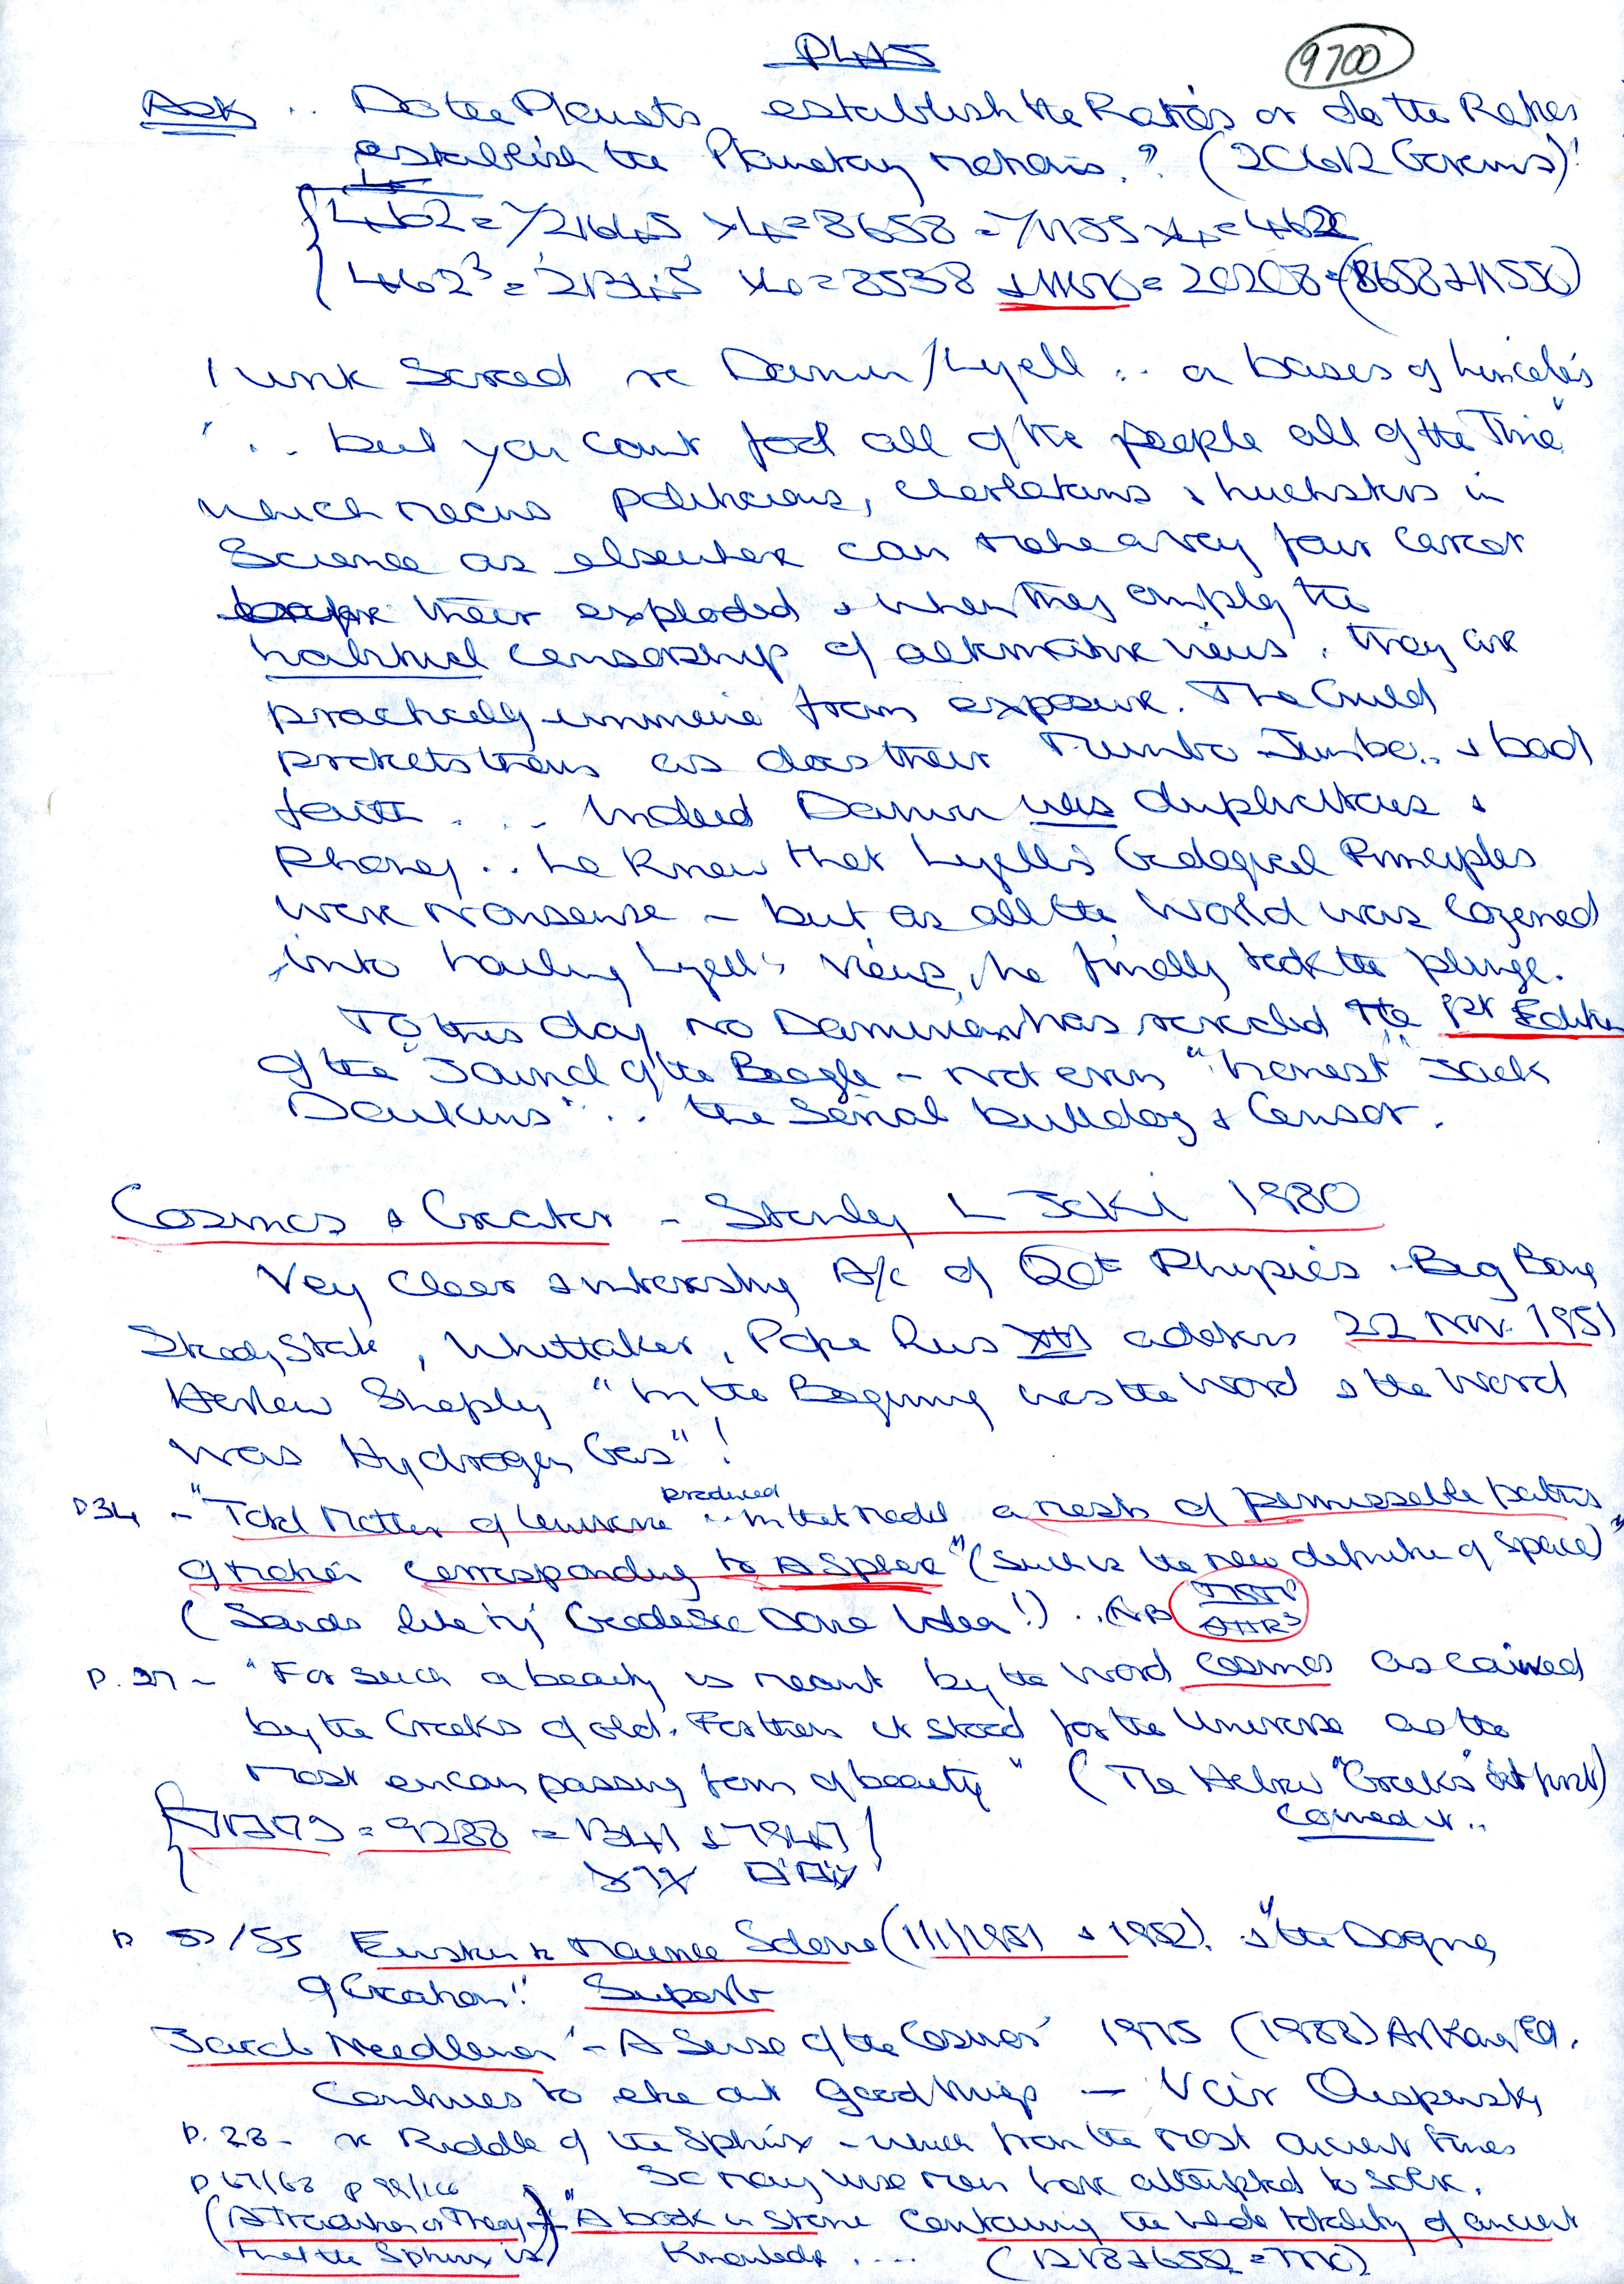 PLATS
9700
Ask .. Do the Planets establish the Ratios or do the Ratios
establish the Planetary motions.? (
462 = √21645 x4=8658 = √1155 x4=462
462³ = x4=8538 = 20208 = (8658+11550)
I wrk Sacred re Darwin/Lyell .. on basis of Lincoln's
".. but you cant fool all of the people all of the Time"
which means politicians, charlatans & hucksters in
Science as elsewhere can make a very fair career
before their exploded & when they employ the
habitual censorship of alternative views, they are
practically immune from exposure. The Guild
protects them as does their Mumbo-Jumbo.. & bad
faith ... Indeed Darwin was duplicitous &
Phoney .. he knew that Lyell's Geological Principles
were nonsense - but as all the World was cozened
into hailing Lyell's views, he finally took the plunge.
To this day no Darwinian has revealed the 1st Edition
of the "Journal of the Beagle" - not even "honest" Jack
Dawkins .. the Serial bulldog & Censor.
Cosmos & Creator - Stanley L Jaki 1980
Very clear & interesting A/c of 20th Physics - Big Bang
Steady State, Whittaker, Pope Pius XII address 22 Nov. 1951
Harlow Shapley "In the Beginning was the Word & the Word
was Hydrogen Gas"!
P34 - "Total Matter of Universe produced .. in that model a mesh of permissable paths
of motion corresponding to A Sphere" (such is the new definition of space)"
(Sounds like my Geodesic Dome Idea!) .. (NB
P. 37 - "For such a beauty is meant by the word cosmos as coined
by the Greeks of old. For them it stood for the Universe as the
most encompassing form of beauty" (The Hebrew "Greeks" first)
coined it ..
= 9288 = 1341 + 7947
P 53/55 Einstein to Maurice Solovine (1/1/1951 & 1952). & "the Dogma
of Creation!" Superb
Jacob Needleman - "A Sense of the Cosmos" 1975 (1988) Arkana Ed.
Continues to eke out good things — Ouspensky
P. 28 - re Riddle of the Sphinx - which from the most ancient times
P 67/68 P so many wise men have attempted to solve.
(A Tradition or Theory that the Sphinx is) "A book in stone containing the whole totality of ancient
Knowledge .... (